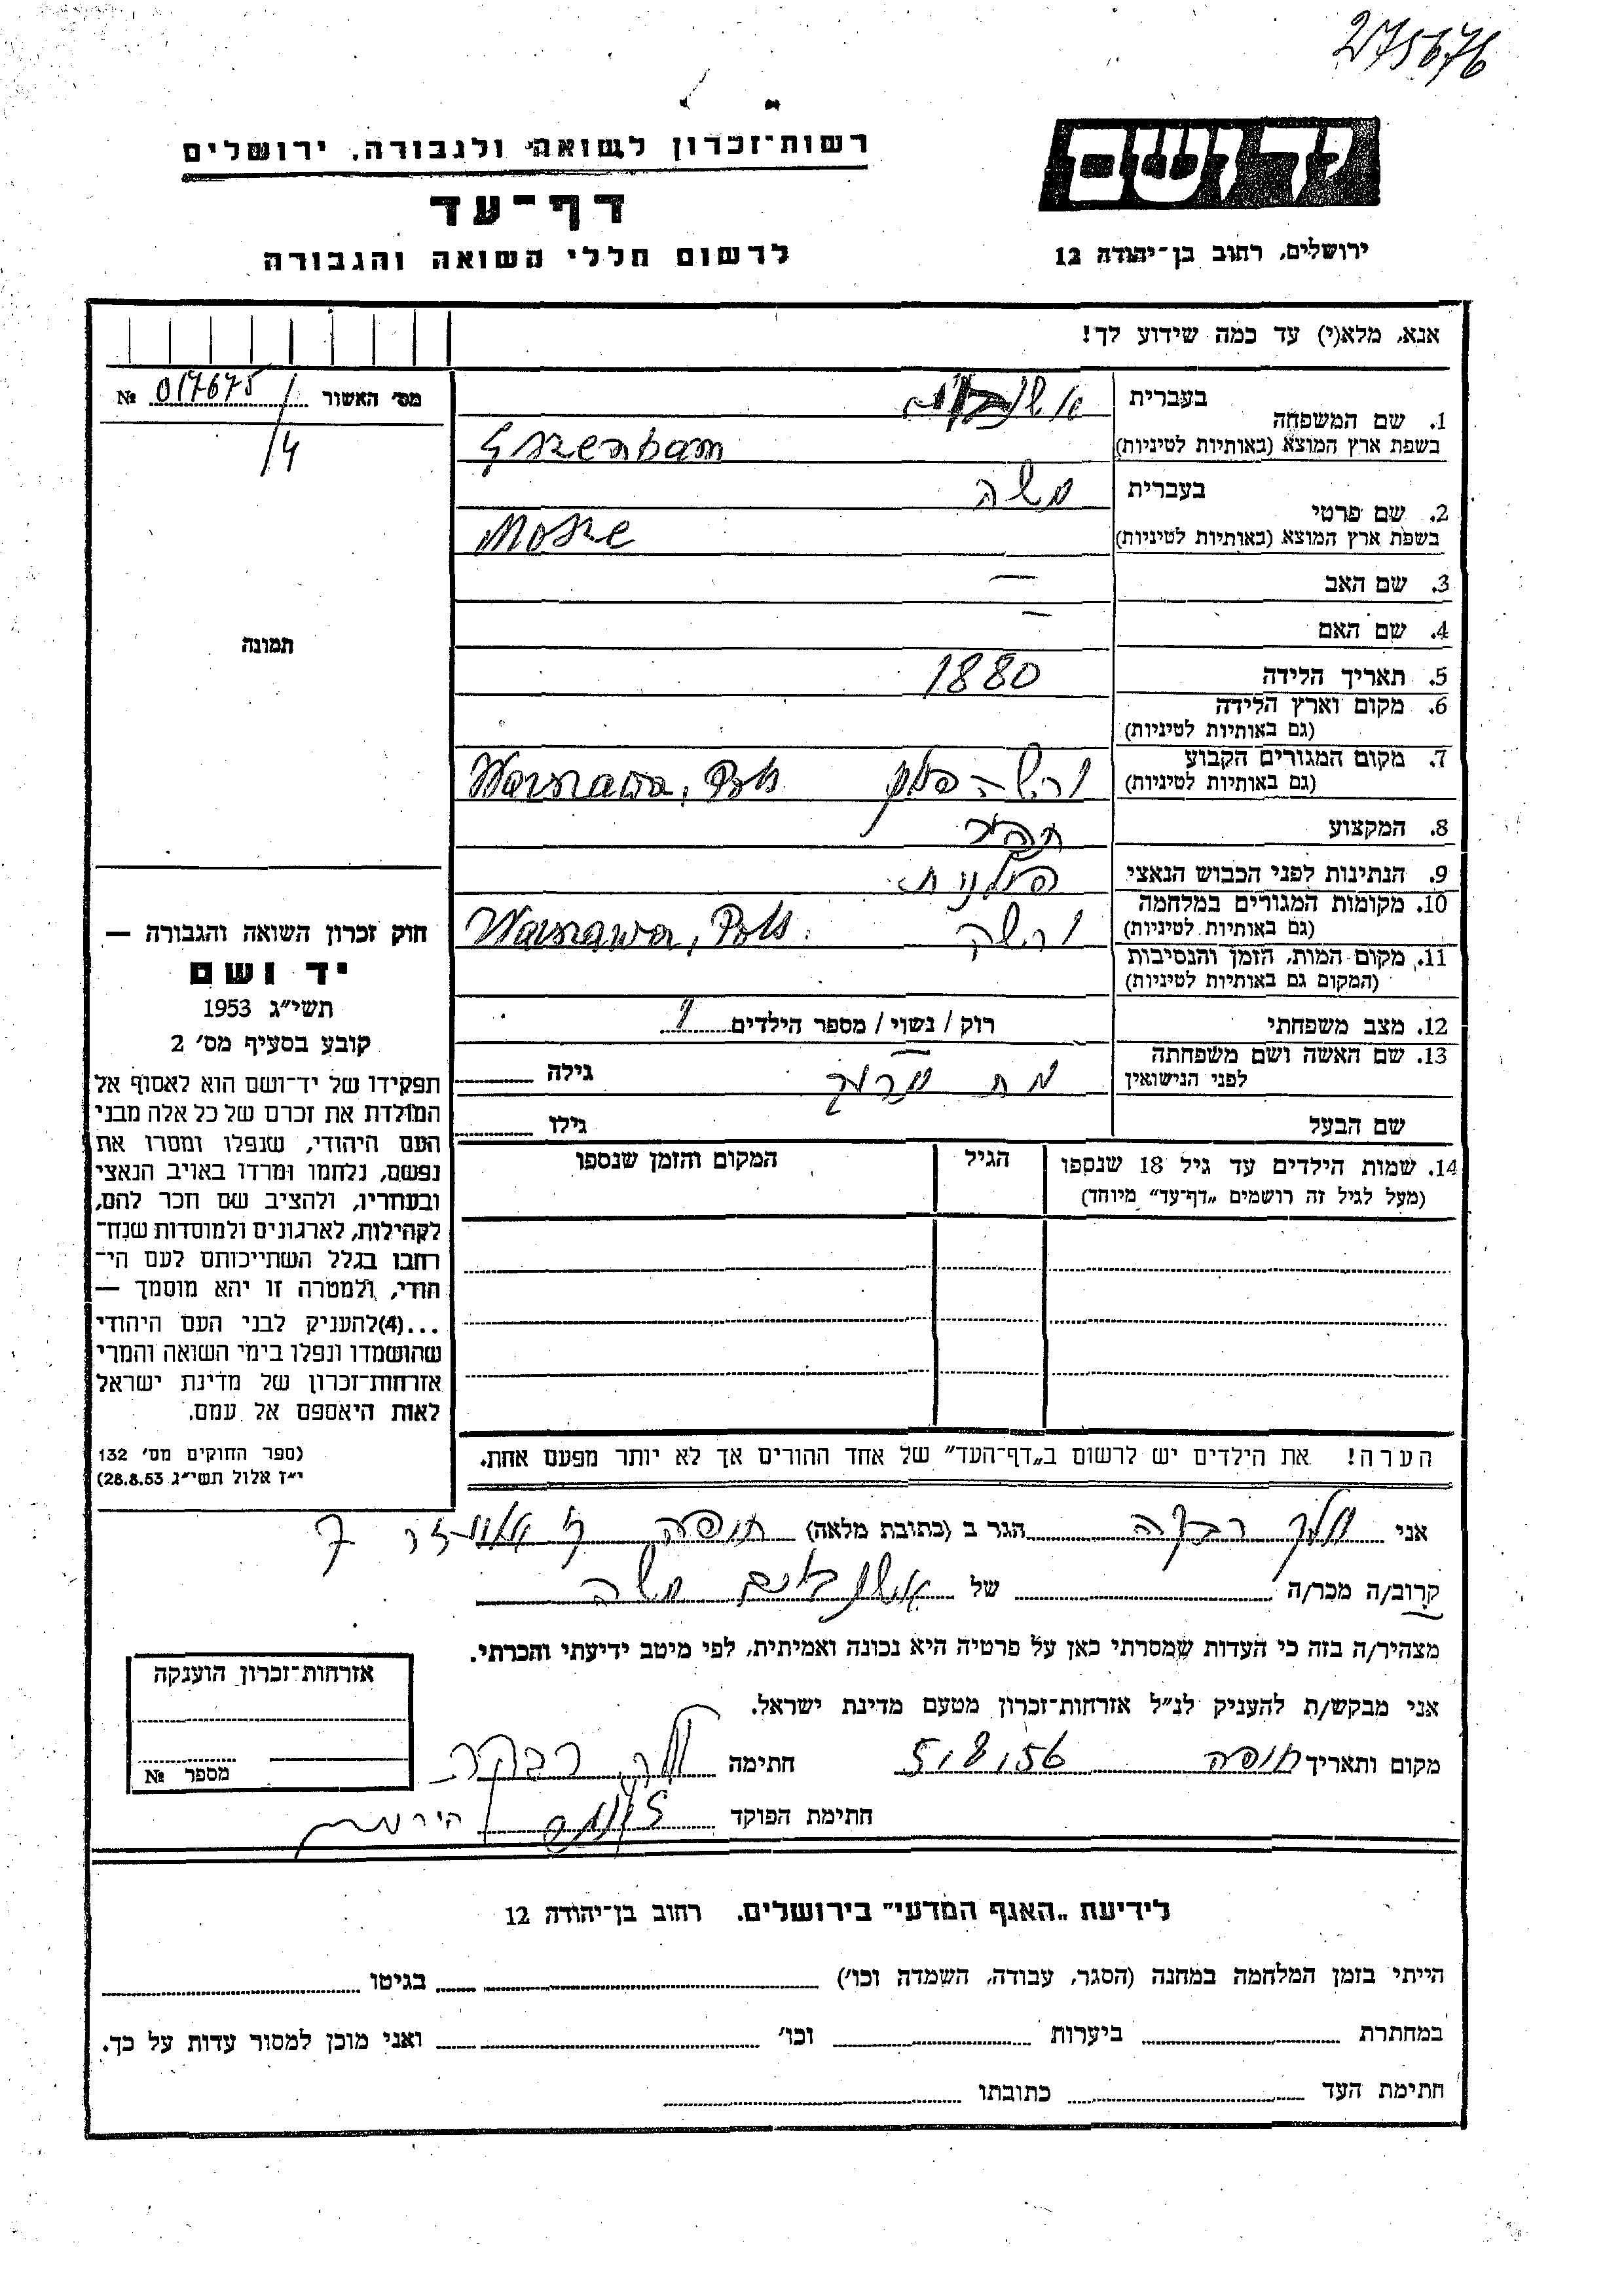 275676
יד ושם
רשות־זכרון לשואה ולגבורה, ירושלים
דף־עד
לרשום חללי השואה והגבורה
ירושלים, רחוב בן־יהודה 12
אנא, מלא(י) עד כמה שידוע לך!
מס׳ האשור 017675 №
/4
1. שם המשפחה בעברית
בשפת ארץ המוצא (באותיות לטיניות)
2. שם פרטי בעברית משה
בשפת ארץ המוצא (באותיות לטיניות)
3. שם האב —
4. שם האם —
תמונה
5. תאריך הלידה 1880
6. מקום וארץ הלידה
(גם באותיות לטיניות)
7. מקום המגורים הקבוע ורשה - פולין
(גם באותיות לטיניות)
8. המקצוע
9. הנתינות לפני הכבוש הנאצי פולנית
10. מקומות המגורים במלחמה ורשה
(גם באותיות לטיניות)
11. מקום המות, הזמן והנסיבות
(המקום גם באותיות לטיניות)
12. מצב משפחתי רוק / נשוי / מספר הילדים
13. שם האשה ושם משפחתה גילה
לפני הנישואין
שם הבעל גילו
14. שמות הילדים עד גיל 18 שנספו הגיל המקום והזמן שנספו
(מעל לגיל זה רושמים „דף־עד” מיוחד)
הערה! את הילדים יש לרשום ב„דף־העד” של אחד ההורים אך לא יותר מפעם אחת.
חוק זכרון השואה והגבורה —
יד ושם
תשי״ג 1953
קובע בסעיף מס׳ 2
תפקידו של יד־ושם הוא לאסוף אל
המולדת את זכרם של כל אלה מבני
העם היהודי, שנפלו ומסרו את
נפשם, נלחמו ומרדו באויב הנאצי
ובעוזריו, ולהציב שם וזכר להם,
לקהילות, לארגונים ולמוסדות שנח־
רחבו בגלל השתייכותם לעם הי־
הודי, ולמטרה זו יהא מוסמך —
...(4)להעניק לבני העם היהודי
שהושמדו ונפלו בימי השואה והמרי
אזרחות־זכרון של מדינת ישראל
לאות היאספם אל עמם.
(ספר החוקים מס׳ 132
י״ז אלול תשי״ג 28.8.53)
אני רבקה הגר ב (כתובת מלאה) חיפה 7
קרוב/ה מכר/ה של משה
מצהיר/ה בזה כי העדות שמסרתי כאן על פרטיה היא נכונה ואמיתית, לפי מיטב ידיעתי והכרתי.
אני מבקש/ת להעניק לנ״ל אזרחות־זכרון מטעם מדינת ישראל.
מקום ותאריך חיפה 5.8.56 חתימה רבקה
חתימת הפוקד
אזרחות־זכרון הוענקה
מספר №
לידיעת „האגף המדעי” בירושלים. רחוב בן־יהודה 12
הייתי בזמן המלחמה במחנה (הסגר, עבודה, השמדה וכו׳) בגיטו
במחתרת ביערות וכו׳ ואני מוכן למסור עדות על כך.
חתימת העד כתובתו